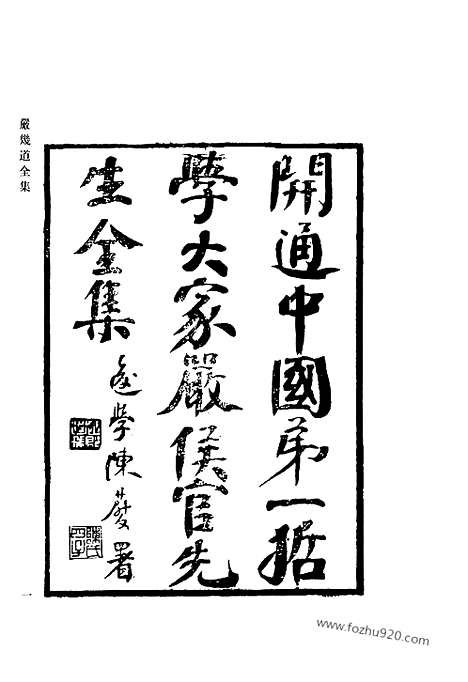 開通中國第一哲
學大家嚴侯官先
生全集
學陳
署
嚴幾道全集
一
www.fozhu920.com